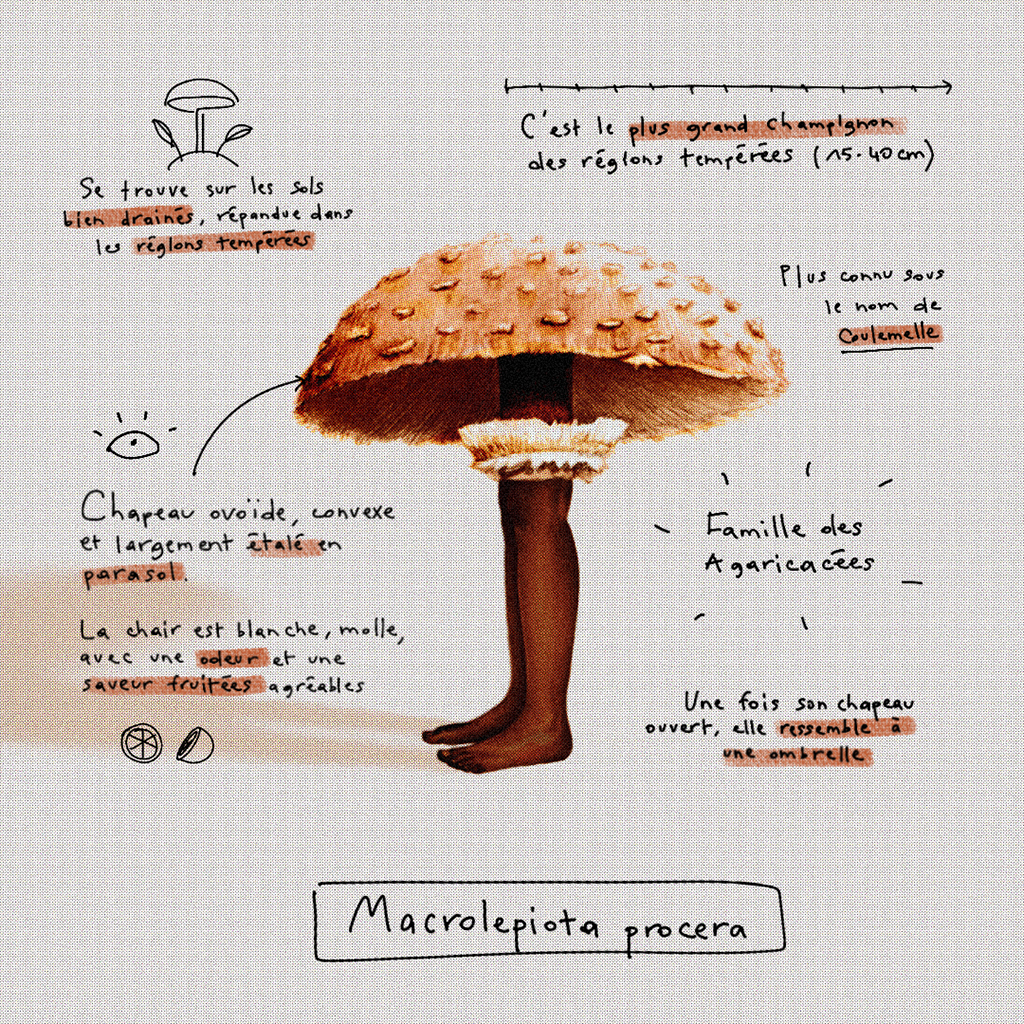 C'est le plus grand champignon
des régions tempérées (15-40cm)
Se trouve sur les sols
bien drainés, répandue dans
les régions tempérées
Plus connu sous
le nom de
Coulemelle
Chapeau ovoïde, convexe
et largement étalé en
parasol.
Famille des
Agaricacées
La chair est blanche, molle,
avec une odeur et une
saveur fruitées agréables
Une fois son chapeau
ouvert, elle ressemble à
une ombrelle
Macrolepiota procera